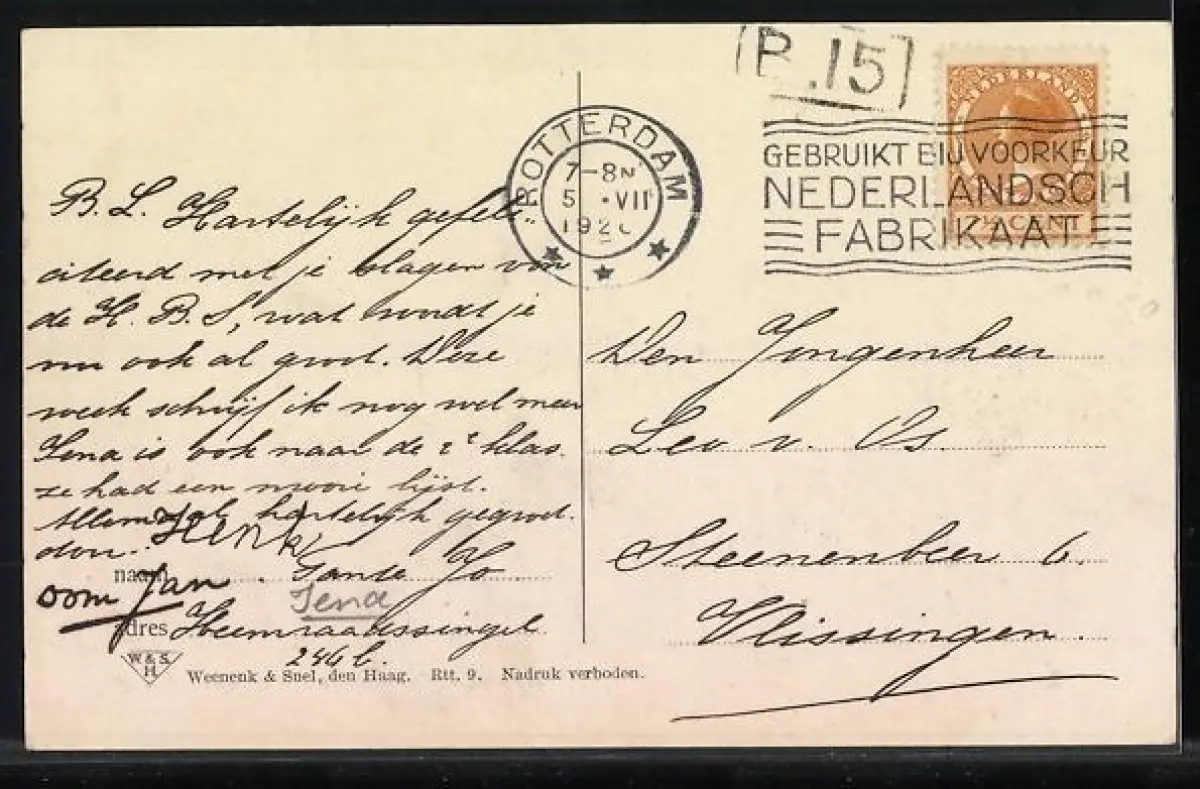 B. 15
NEDERLAND
7½ CENT
ROTTERDAM
7-8N
5 .VII
192
GEBRUIKT BIJ VOORKEUR
NEDERLANDSCH
FABRIKAAT
B. L. Hartelijk gefeli-
citeerd met je slagen van
de H. B. S, wat wordt je
nu ook al groot. Deze
week schrijf ik nog wel meer
Jena is ook naar de 2e klas.
ze had een mooie lijst.
Allemaal hartelijk gegroet.
door. Henk
naam Tante Jo
oom Jan Jena
adres Heemraadssingel
246
W & S.
H
Weenenk & Snel, den Haag. Rtt. 9. Nadruk verboden.
Den Jongenheer
Leo v. Os.
Steenenbeer 6.
Vlissingen.